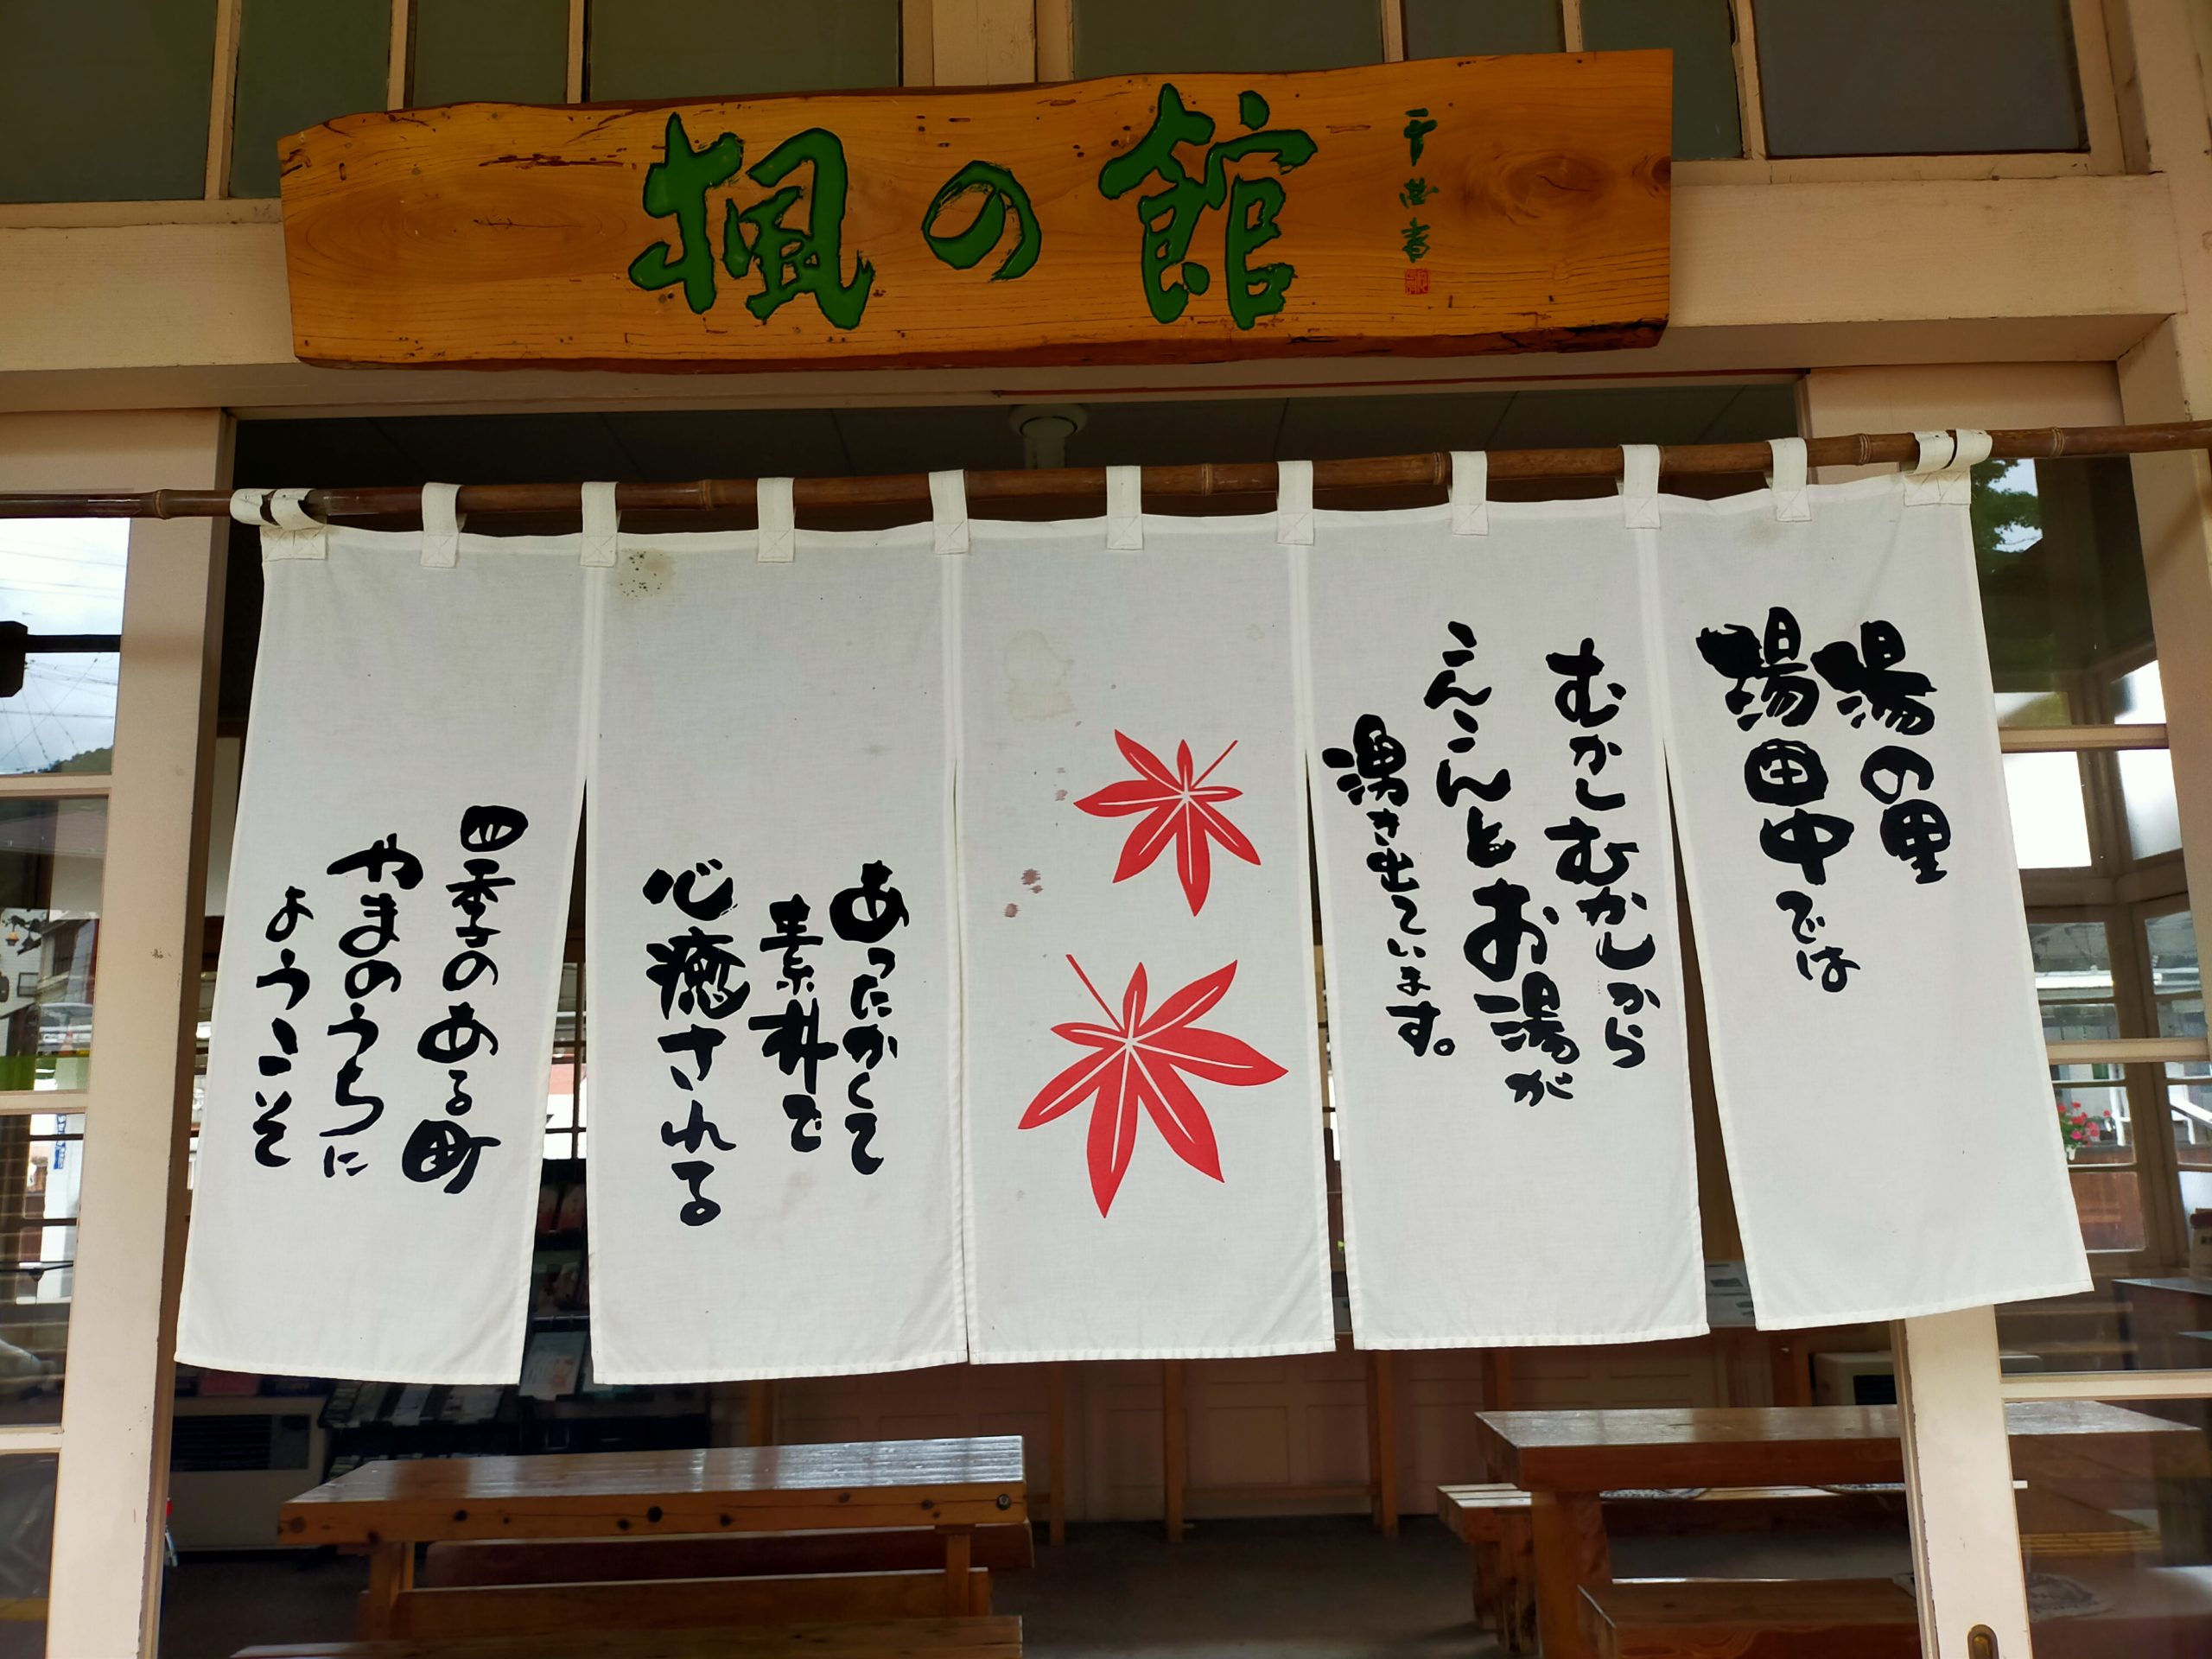 楓の館
湯の里
湯田中では
むかしむかしから
こんこんとお湯が
湧き出ています。
あったかくて
素朴で
心癒される
四季のある町
やまのうちに
ようこそ